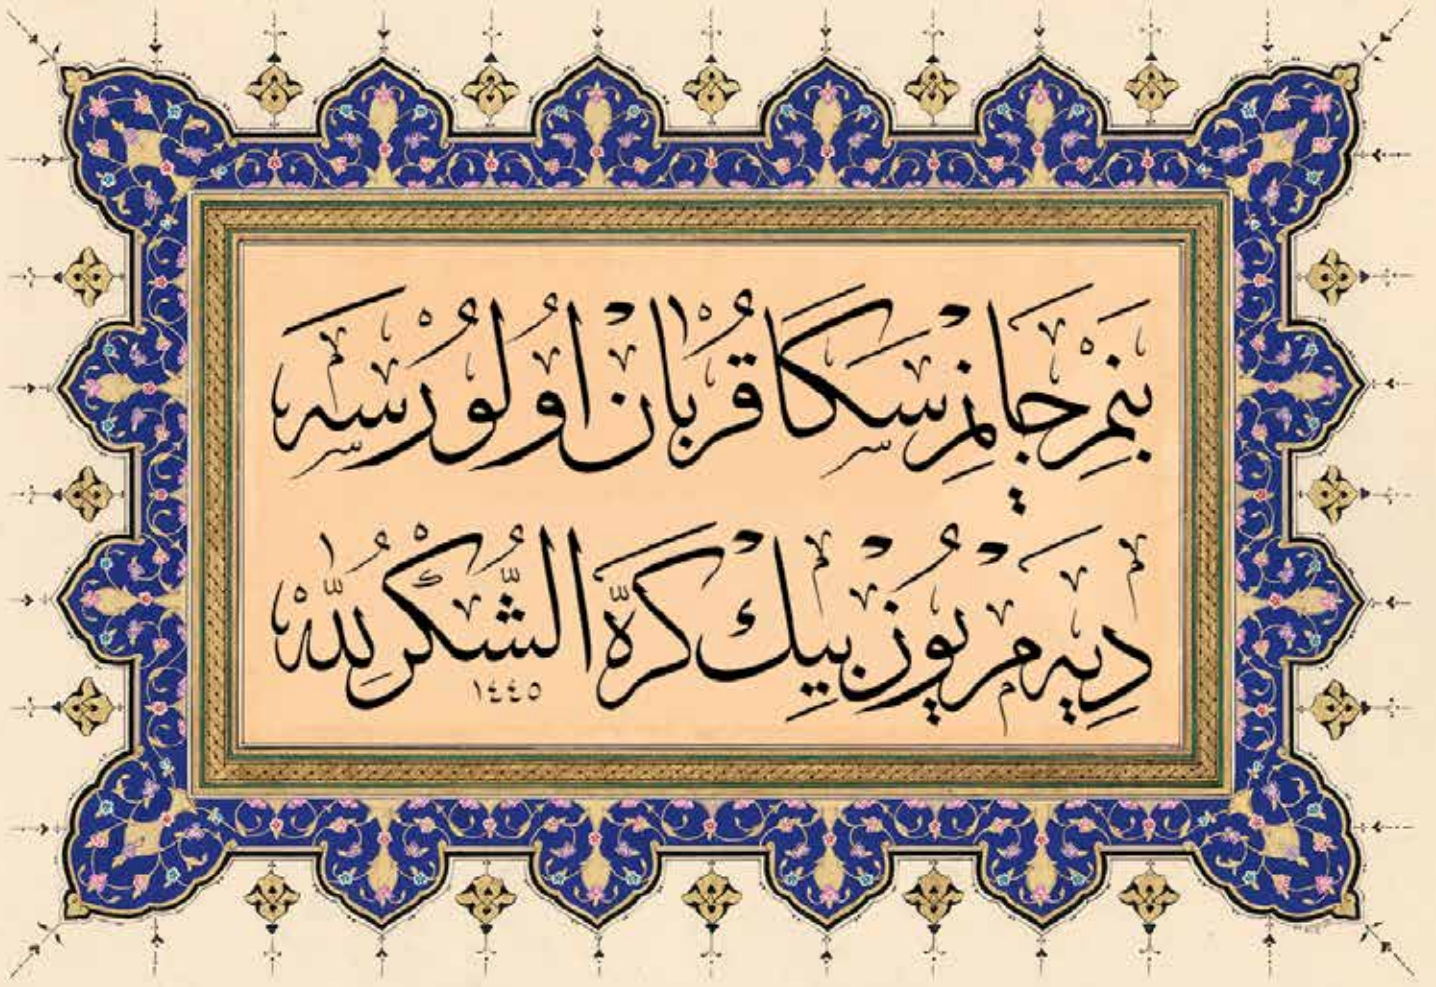 بَنِمْ جَانِمْ سَكَا قُرْبَانْ اُولُورْسَهْ
دِيَهمْ يُوزْ بِيكْ كَرَّهْ الشُّكْرُ لِلّٰهْ
١٤٤٥